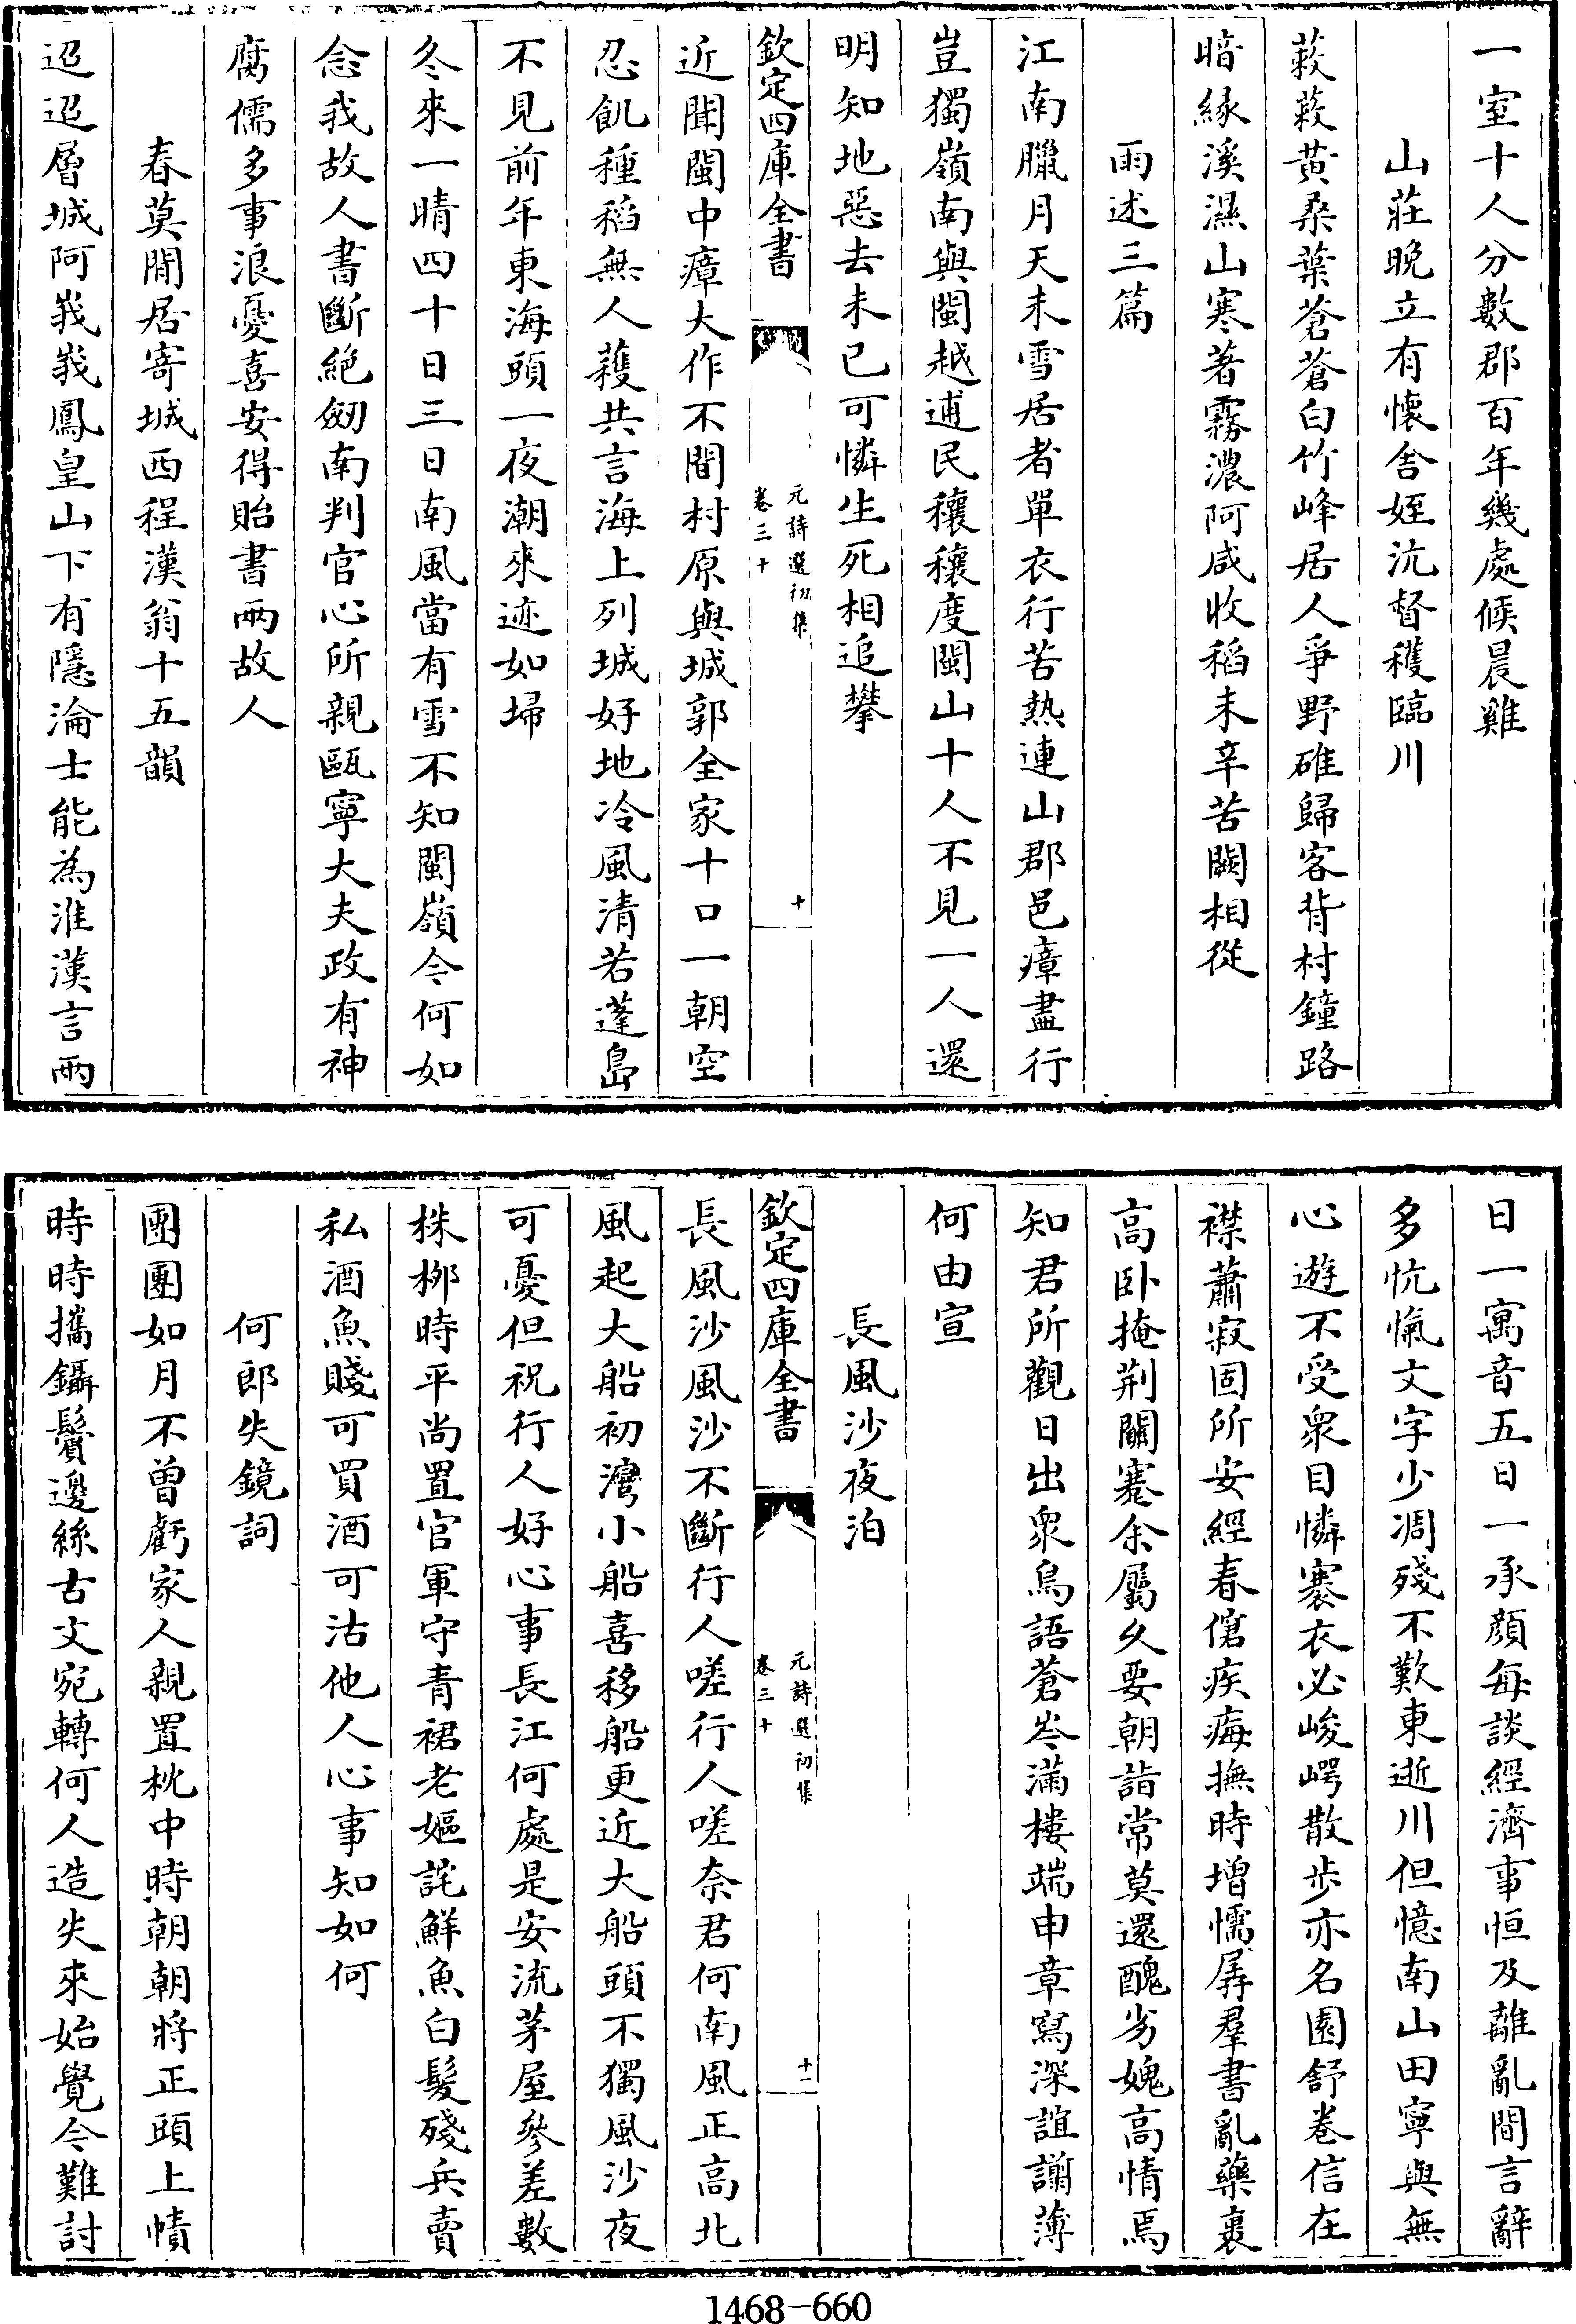 一室十人分數郡百年幾處候晨雞
山莊晩立有懷舍姪沆督穫臨川
蔌蔌黄桑葉蒼蒼白竹峰居人爭野碓歸客背村鐘路
暗縁溪濕山寒著霧濃阿咸收稻未辛苦闕相從
雨述三篇
江南臘月天未雪居者單衣行苦熱連山郡邑瘴盡行
豈獨嶺南與閩越逋民穰穰度閩山十人不見一人還
明知地惡去未已可憐生死相追攀
欽定四庫全書
元詩選初集
卷三十
十
近聞閩中瘴大作不間村原與城郭全家十口一朝空
忍飢種稻無人穫共言海上列城好地冷風清若蓬島
不見前年東海頭一夜潮來迹如埽
冬來一晴四十日三日南風當有雪不知閩嶺今何如
念我故人書斷絶劒南判官心所親甌寧大夫政有神
腐儒多事浪憂喜安得貽書兩故人
春莫閒居寄城西程漢翁十五韻
迢迢層城阿峩峩鳳皇山下有隱淪士能為淮漢言兩
日一寓音五日一承顔每談經濟事恒及離亂間言辭
多忼愾文字少凋殘不歎東逝川但憶南山田寧與無
心遊不受衆目憐褰衣必峻崿散步亦名園舒巻信在
襟蕭寂固所安經春僒疾痗撫時增懦孱羣書亂藥裹
高卧掩荆關蹇余屬久要朝詣常莫還醜劣媿高情焉
知君所觀日出衆鳥語蒼岑滿樓端申章寫深誼謭薄
何由宣
長風沙夜泊
欽定四庫全書
元詩選初集
卷三十
十一
長風沙風沙不斷行人嗟行人嗟奈君何南風正高北
風起大船初灣小船喜移船更近大船頭不獨風沙夜
可憂但祝行人好心事長江何處是安流茅屋參差數
株栁時平尚置官軍守青裙老嫗詫鮮魚白髮殘兵賣
私酒魚賤可買酒可沽他人心事知如何
何郎失鏡詞
團團如月不曾虧家人親置枕中時朝朝將正頭上幘
時時攜鑷鬢邊絲古文宛轉何人造失來始覺今難討
1468-660